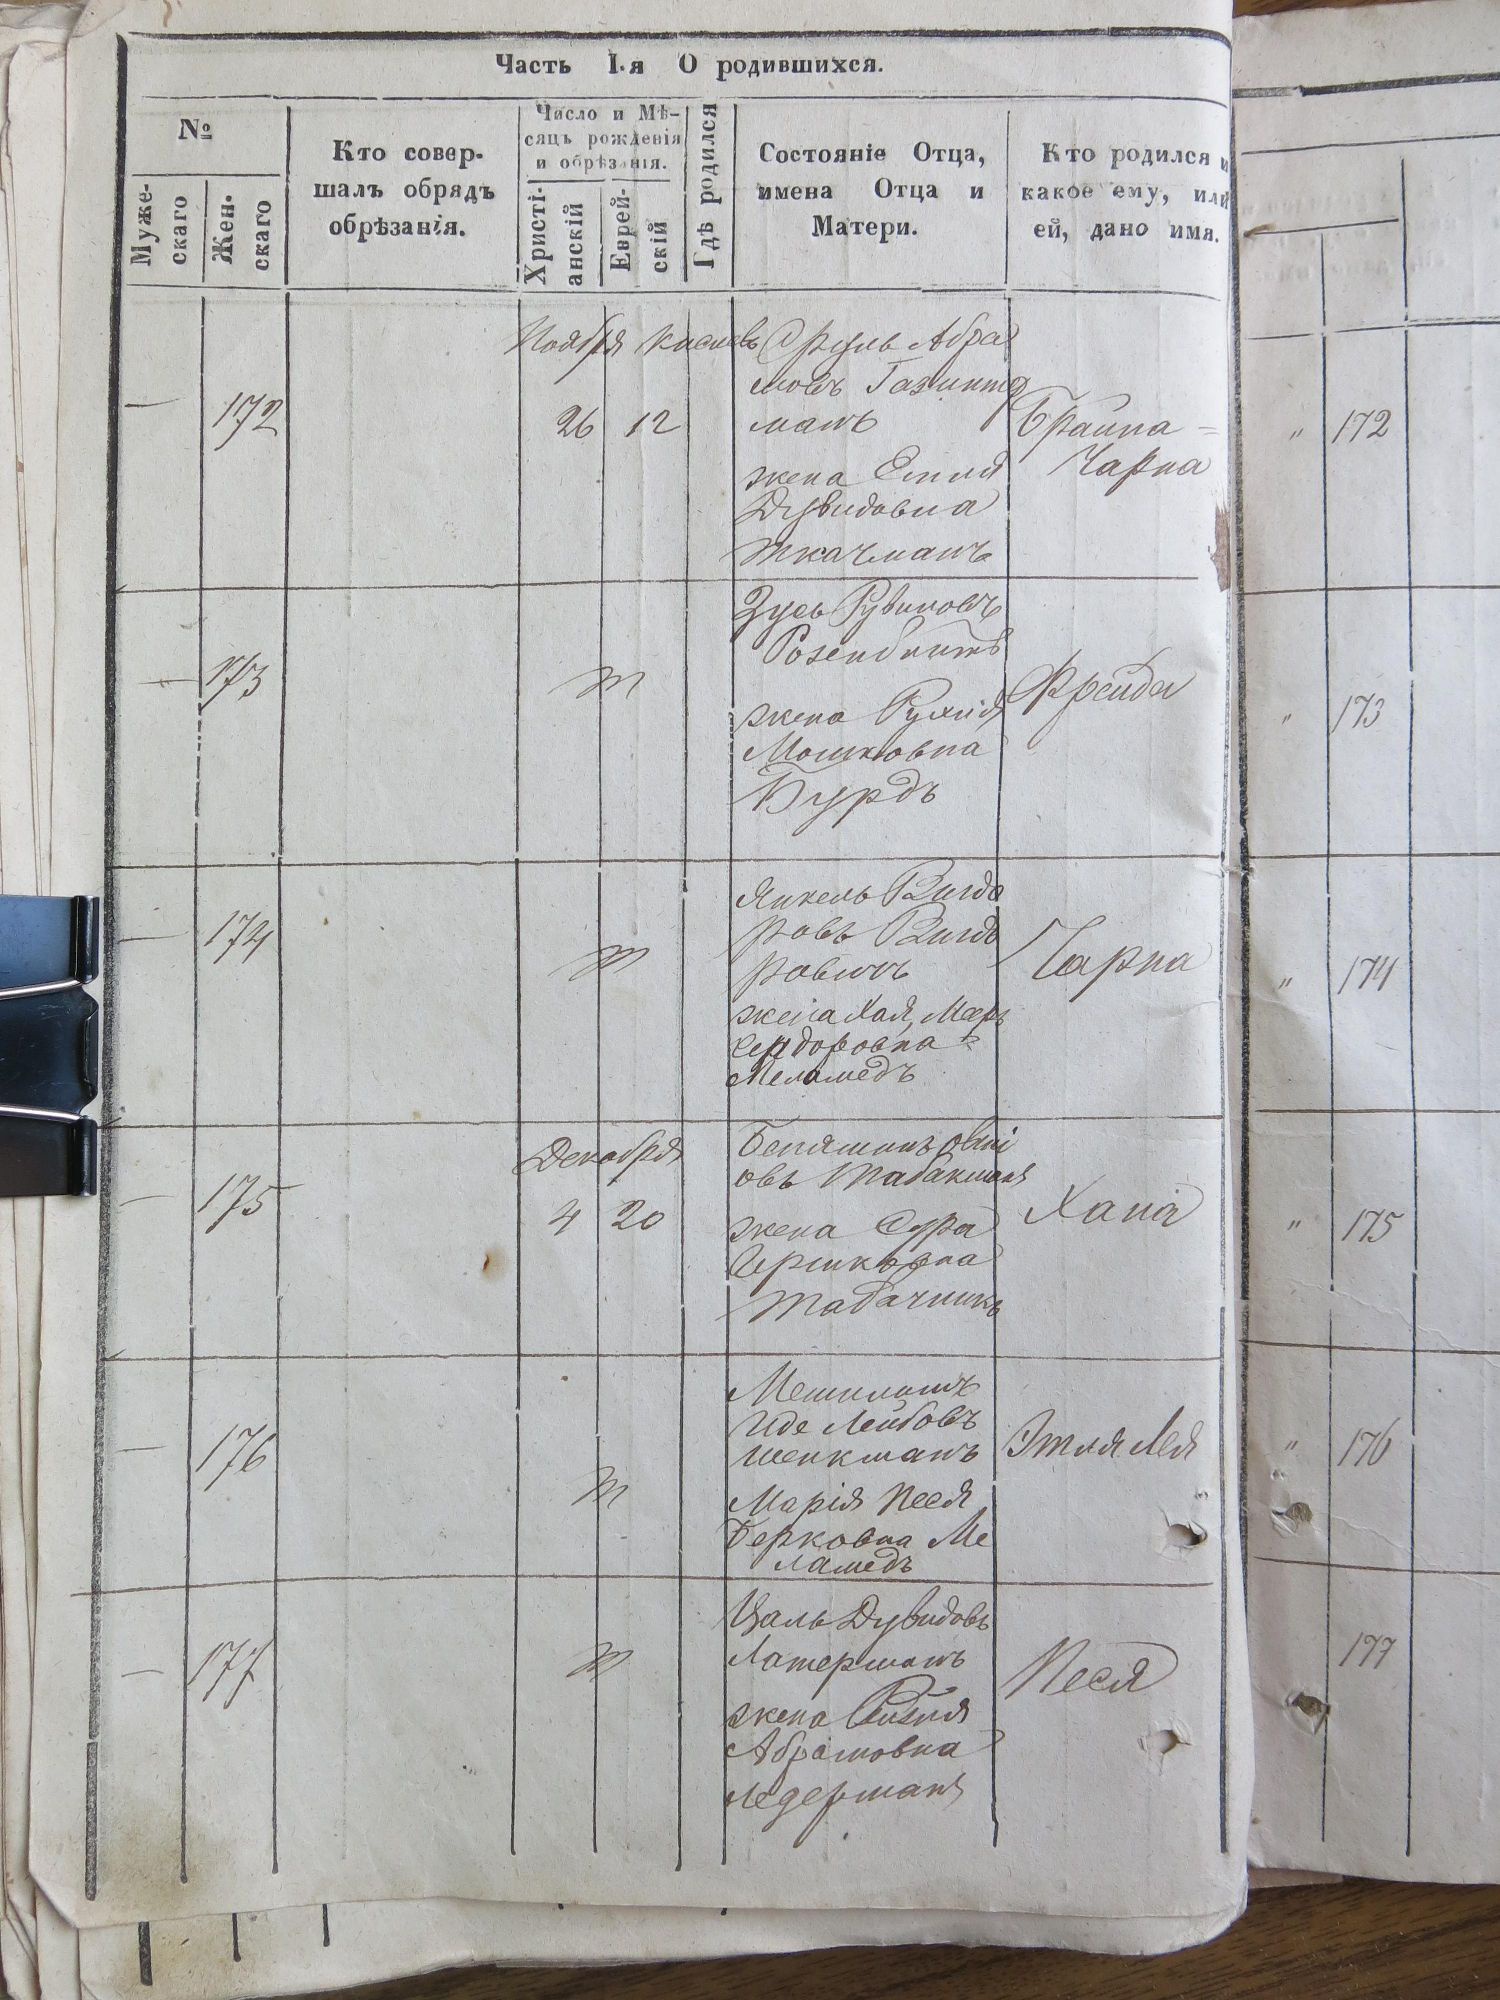 Часть I-я О родившихся.
№
Муже-
скаго
Жен-
скаго
Кто совер-
шалъ обрядъ
обрѣзанія.
Число и Мѣ-
сяцъ рожденія
и обрѣзанія.
Христі-
анскій
Еврей-
скій
Гдѣ родился
Состояніе Отца,
имена Отца и
Матери.
Кто родился и
какое ему, или
ей, дано имя.
— 172
Ноября Кислевъ
26 12
Сруль Абра
мовъ
манъ
жена
Дувидовна
Ткачманъ
Брайна =
Чарна
" 172
— 173
Зусь Рувиновъ
Розенблитъ
жена Рухля
Мошковна
Бурдъ
Фрейда
" 173
— 174
Янкель Вигдо
ровъ Вигдо
ровичъ
жена Хая, Меерь
Сендоровна =
Меламедъ
Чарна
" 174
— 175
Декабря
4 20
Беняминъ
овъ Табакманъ
жена Сура
Гершковна
Табачникъ
Хана
" 175
— 176
Иде Лейбовъ
Шенкманъ
Марія Песя
Берковна Ме
ламедъ
Этля Лея
" 176
— 177
Цаль Дувидовъ
Латерманъ
жена Рейзля
Абрамовна
Ледерманъ
Песя
177